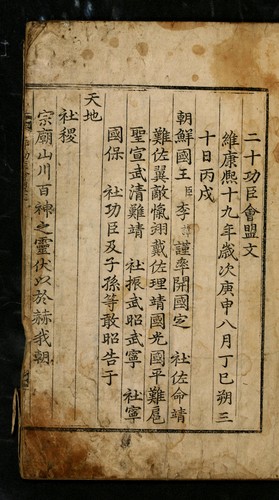 二十功臣會盟文
維康熙十九年歲次庚申八月丁巳朔三
十日丙戌
朝鮮國王臣李 謹率開國定 社佐命靖
難佐翼敵愾翊戴佐理靖國光國平難扈
聖宣武清難靖 社振武昭武寧 社寧
國保 社功臣及子孫等敢昭告于
天地
社稷
宗廟山川百神之靈伏以於赫我朝